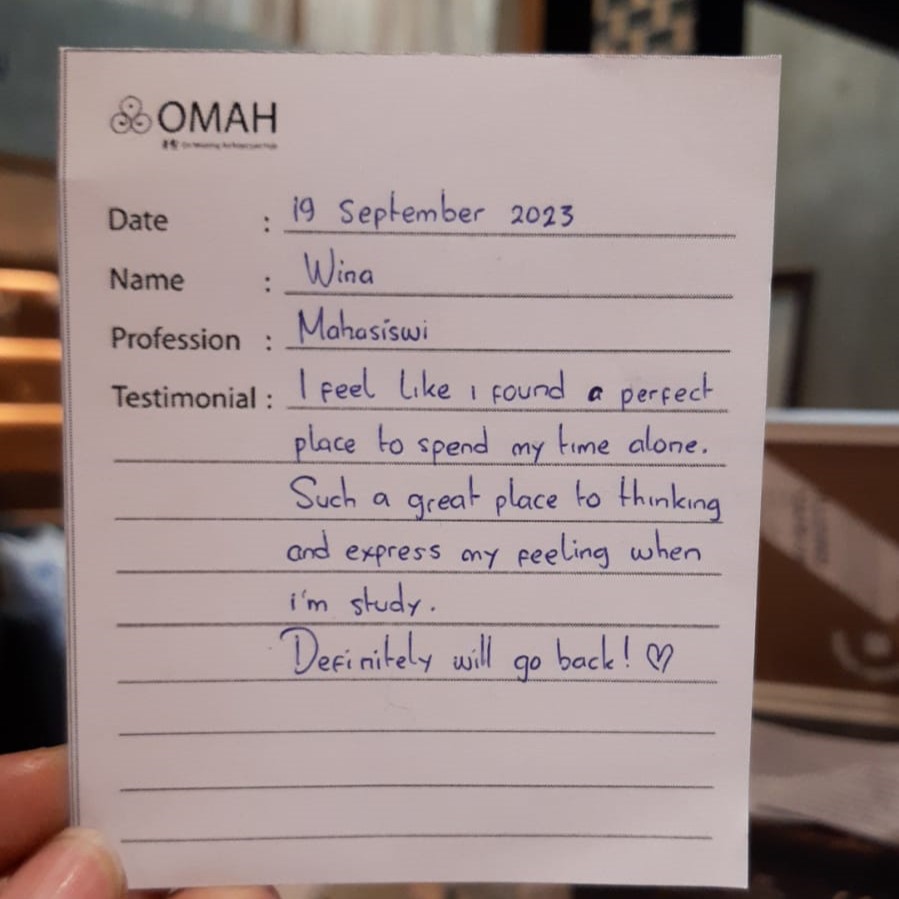 OMAH
Date : 19 September 2023
Name : Wina
Profession : Mahasiswi
Testimonial : I feel like i found a perfect
place to spend my time alone.
Such a great place to thinking
and express my feeling when
i'm study.
Definitely will go back! ♡